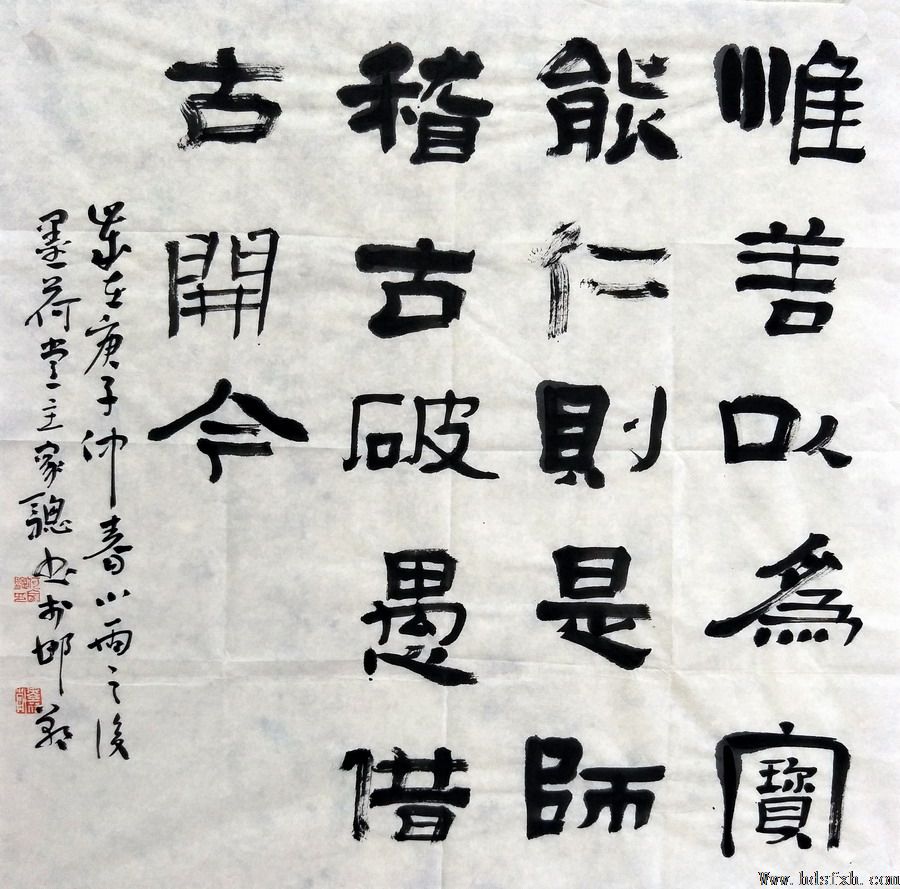 惟善以為寶
能仁則是師
稽古破愚借
古開今
歲在庚子仲春小雨之後
墨荷堂主家驄书於邯鄲
Www.hdsfxh.com